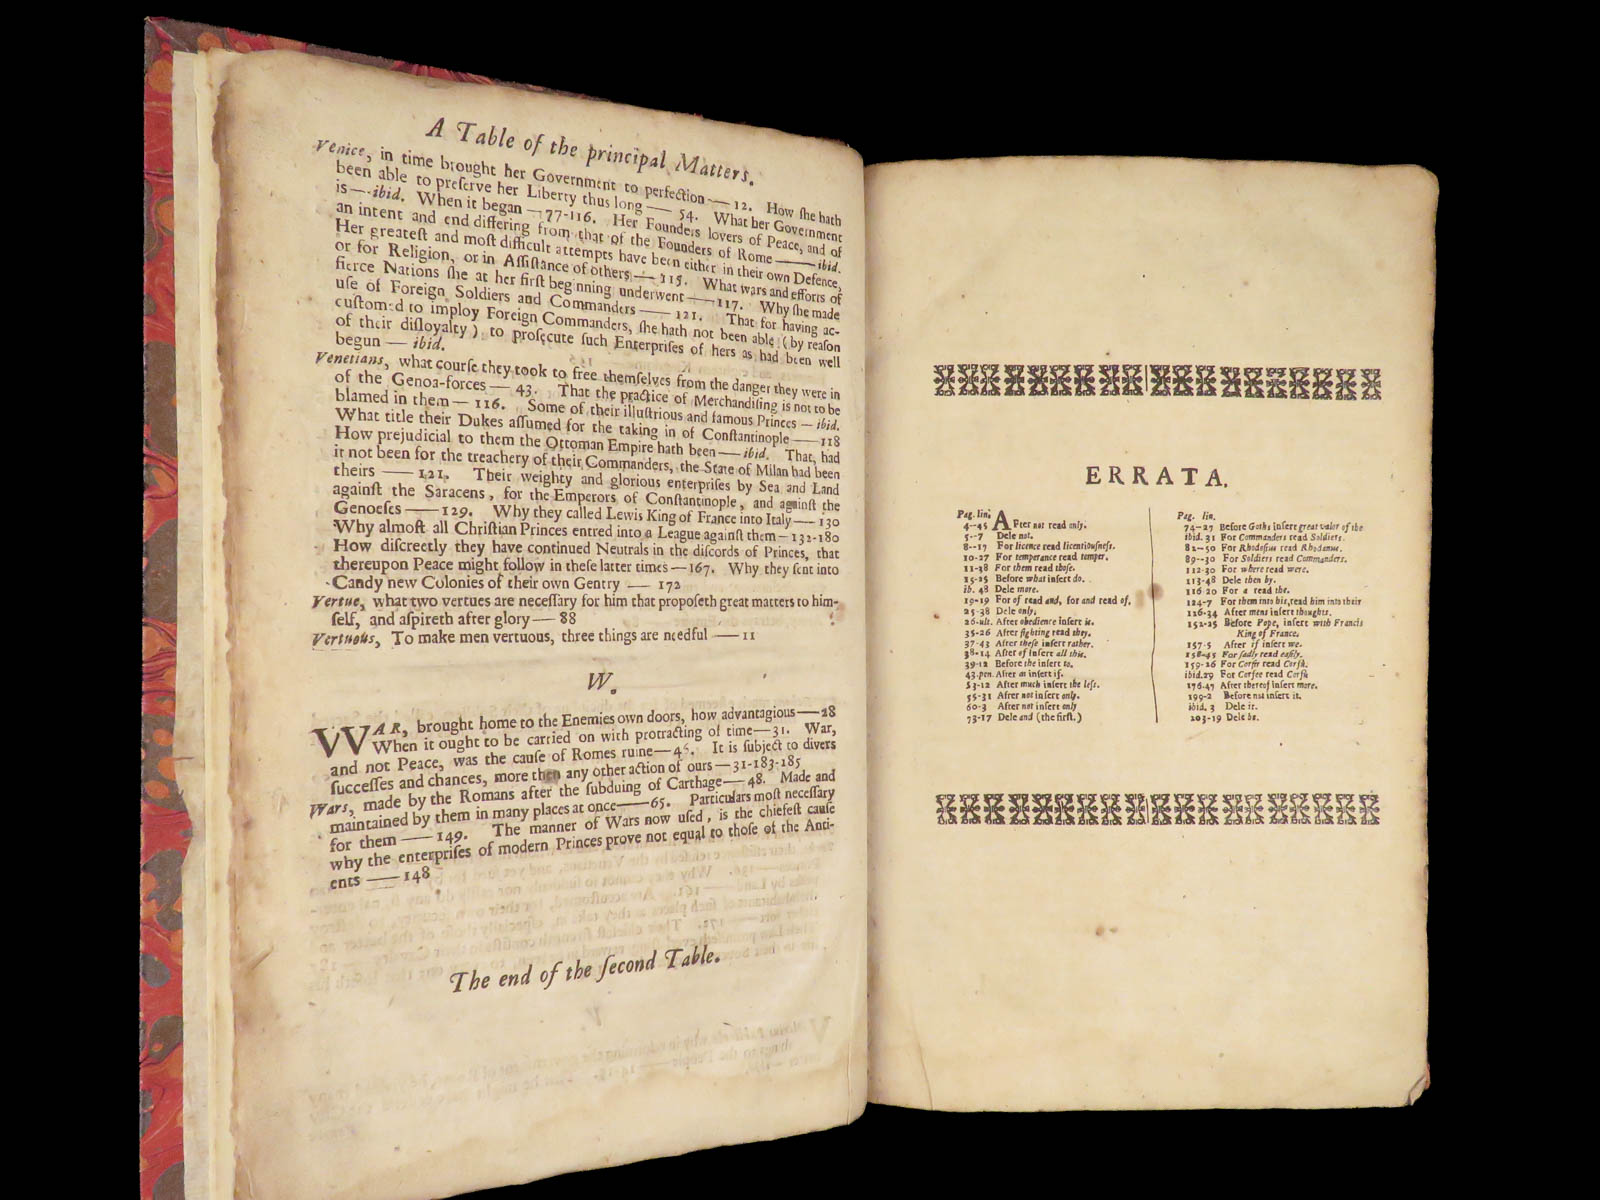 A Table of the principal Matters.
Venice, in time brought her Government to perfection — 12. How ſhe hath
been able to preſerve her Liberty thus long — 54. What her Government
is — ibid. When it began — 77-116. Her Founders lovers of Peace, and of
an intent and end differing from that of the Founders of Rome — ibid.
Her greateſt and moſt difficult attempts have been either in their own Defence,
or for Religion, or in Aſſiſtance of others — 115. What wars and efforts of
fierce Nations ſhe at her firſt beginning underwent — 117. Why ſhe made
uſe of Foreign Soldiers and Commanders — 121. That for having ac-
cuſtomed to imploy Foreign Commanders, ſhe hath not been able (by reaſon
of their diſloyalty) to proſecute ſuch Enterpriſes of hers as had been well
begun — ibid.
Venetians, what courſe they took to free themſelves from the danger they were in
of the Genoa-forces — 43. That the practice of Merchandiſing is not to be
blamed in them — 116. Some of their illuſtrious and famous Princes — ibid.
What title their Dukes aſſumed for the taking in of Conſtantinople — 118
How prejudicial to them the Ottoman Empire hath been — ibid. That, had
it not been for the treachery of their Commanders, the State of Milan had been
theirs — 121. Their weighty and glorious enterpriſes by Sea and Land
againſt the Saracens, for the Emperors of Conſtantinople, and againſt the
Genoeſes — 129. Why they called Lewis King of France into Italy — 130
Why almoſt all Chriſtian Princes entred into a League againſt them — 132-180
How diſcreetly they have continued Neutrals in the diſcords of Princes, that
thereupon Peace might follow in theſe latter times — 167. Why they ſent into
Candy new Colonies of their own Gentry — 172
Vertue, what two vertues are neceſſary for him that propoſeth great matters to him-
ſelf, and aſpireth after glory — 88
Vertuous, To make men vertuous, three things are needful — 11
W.
WAR, brought home to the Enemies own doors, how advantagious — 28
When it ought to be carried on with protracting of time — 31. War,
and not Peace, was the cauſe of Romes ruine — 46. It is ſubject to divers
ſucceſſes and chances, more then any other action of ours — 31-183-185
Wars, made by the Romans after the ſubduing of Carthage — 48. Made and
maintained by them in many places at once — 65. Particulars moſt neceſſary
for them — 149. The manner of Wars now uſed, is the chiefeſt cauſe
why the enterpriſes of modern Princes prove not equal to thoſe of the Anti-
ents — 148
The end of the ſecond Table.
ERRATA.
Pag. lin.
4--45 After not read only.
5--7 Dele not.
8--17 For licence read licentiouſneſs.
10-27 For temperance read temper.
11-38 For them read thoſe.
15-25 Before what inſert do.
ib. 48 Dele more.
19-19 For of read and, for and read of.
25-38 Dele only.
26-ult. After obedience inſert is.
35-26 After fighting read they.
37-43 After theſe inſert rather.
38-14 After of inſert all this.
39-12 Before the inſert to.
43.pen. After as inſert if.
53-12 After much inſert the leſs.
55-31 After not inſert only.
60-3 After not inſert only
73-17 Dele and (the firſt.)
Pag. lin.
74-27 Before Goths inſert great valor of the
ibid. 31 For Commanders read Soldiers.
82-50 For Rhodeſius read Rhodanus.
89--30 For Soldiers read Commanders.
112-30 For where read were.
113-48 Dele then by.
116 20 For a read the.
124-7 For them into his, read him into their
126-34 After mens inſert thoughts.
152-25 Before Pope, inſert with Francis
King of France.
157-5 After if inſert we.
158-45 For ſadly read eaſily.
159-26 For Corfu read Corſu.
ibid.29 For Corfee read Corfu
176-47 After thereof inſert more.
199-2 Before not inſert it.
ibid. 3 Dele it.
203-19 Dele be.